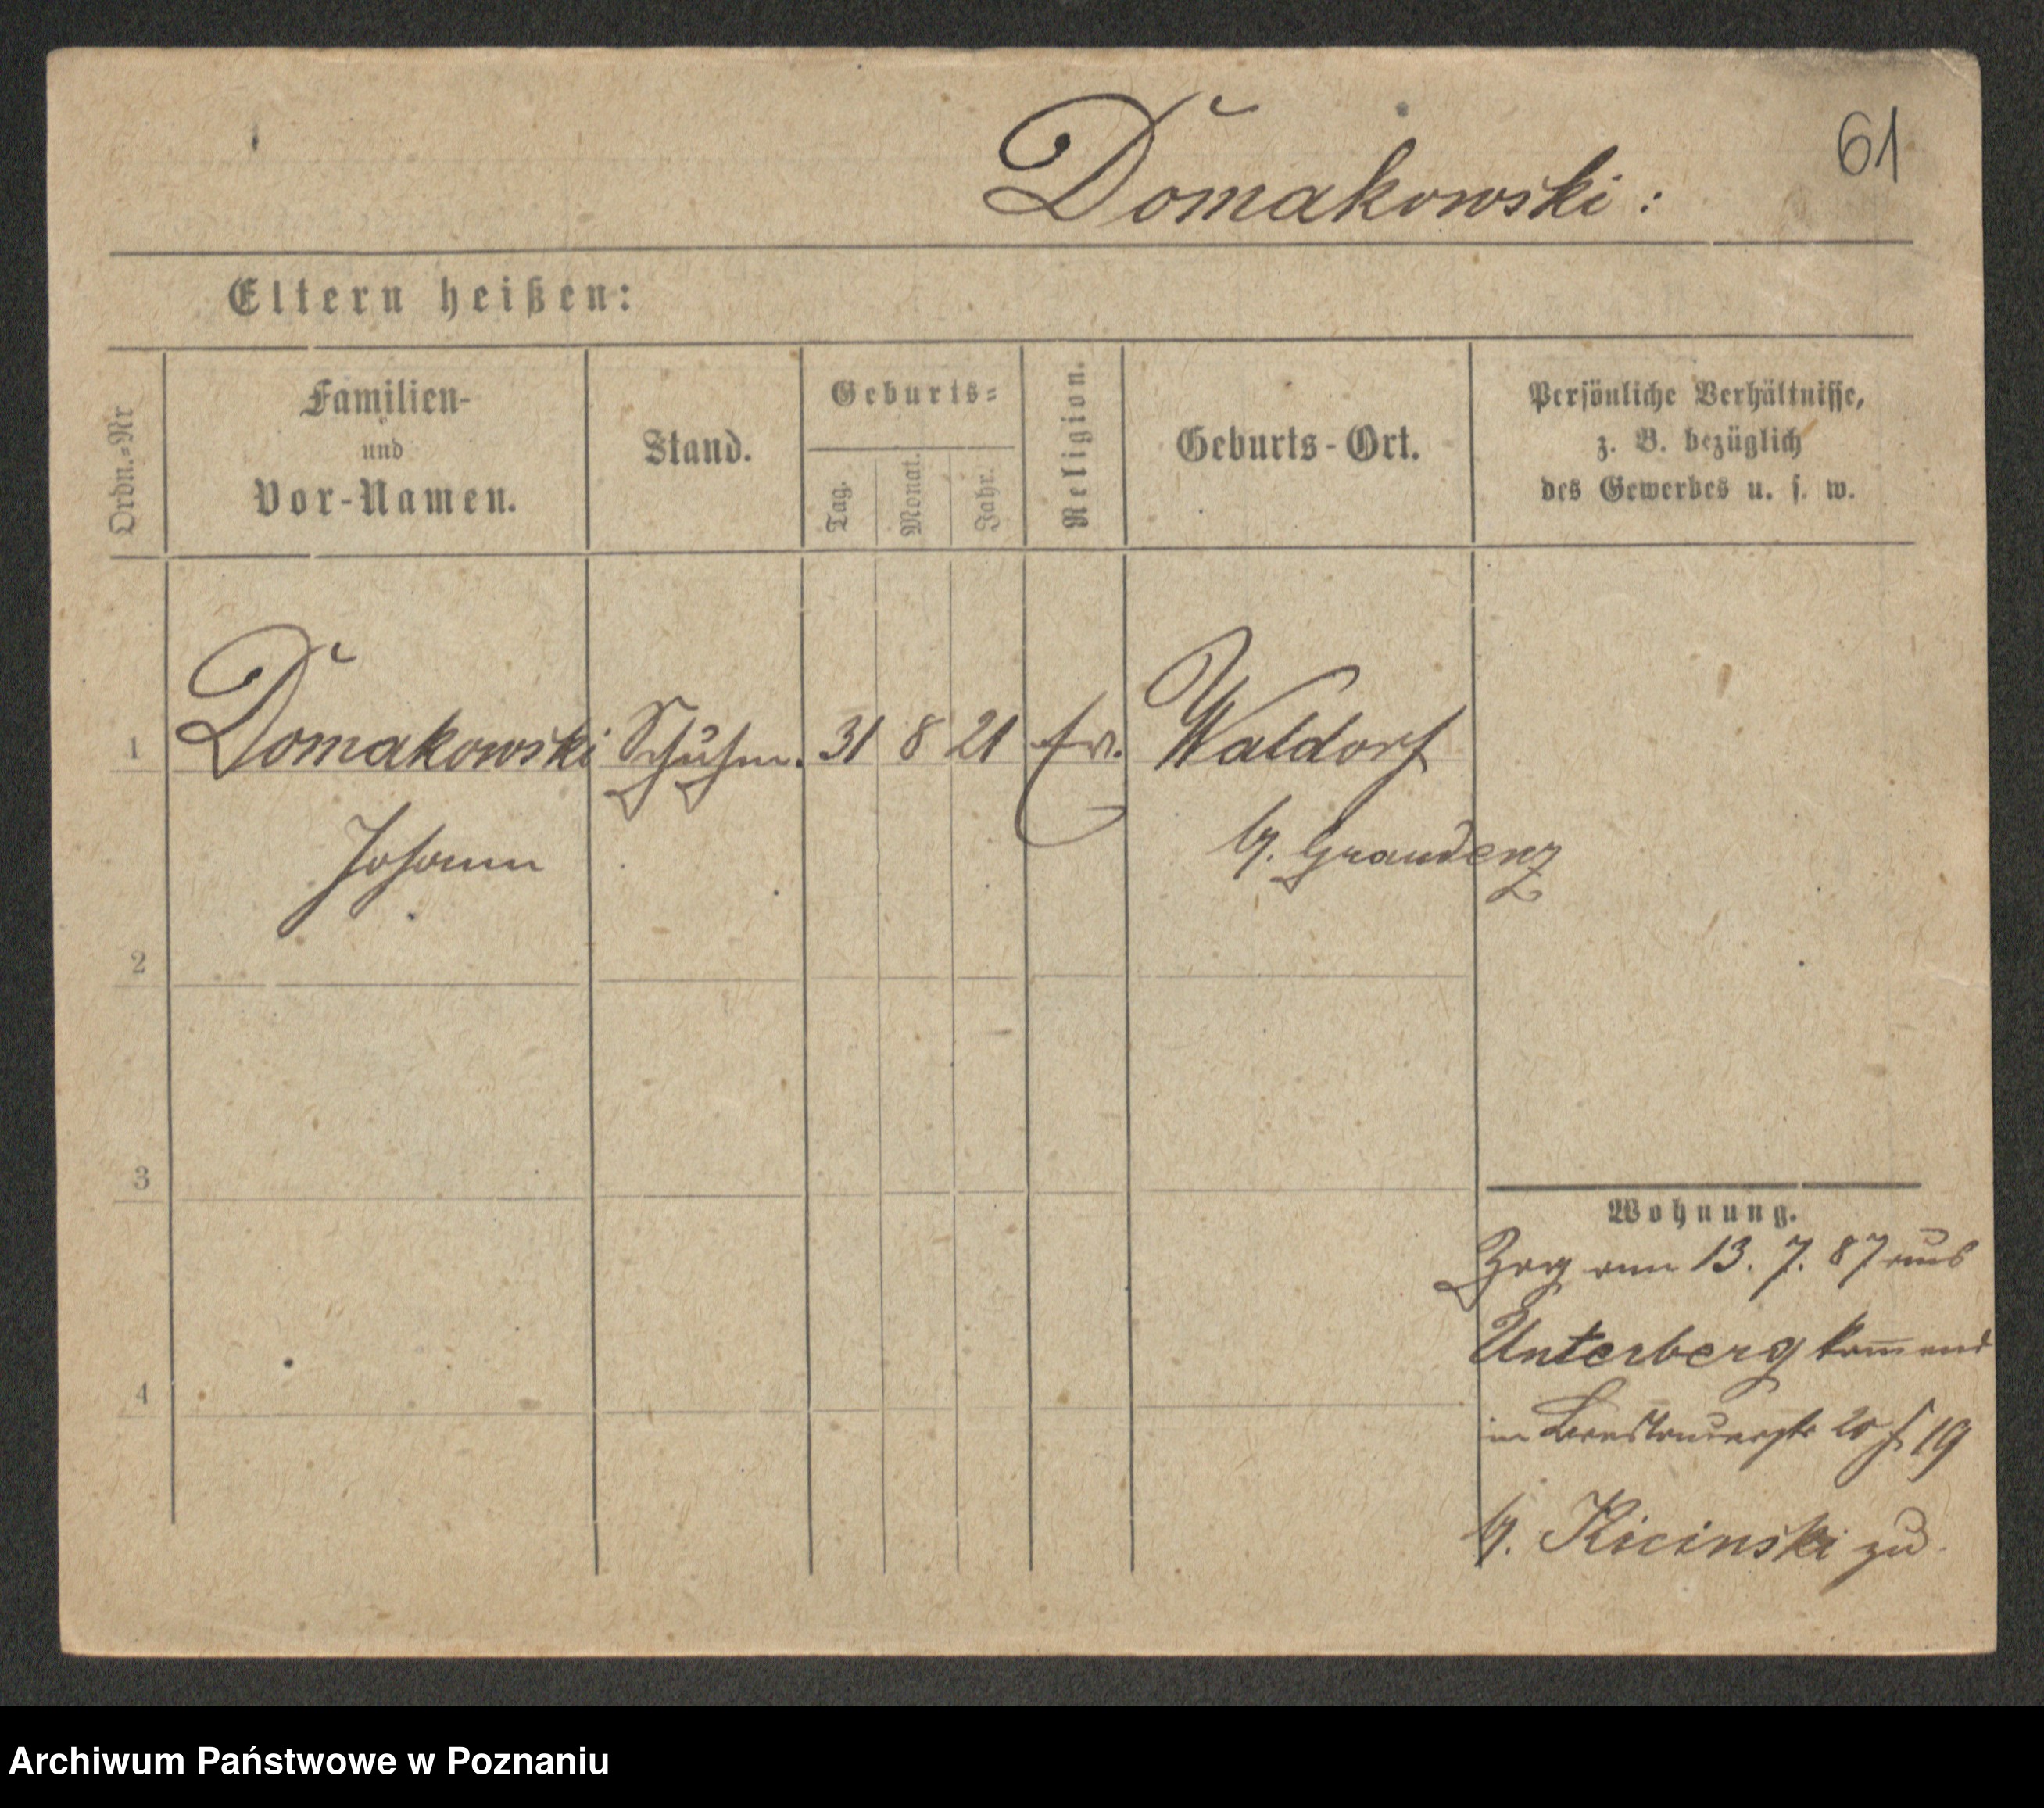 61
Domakowski:
Eltern heißen:
Ordn.-Nr
Familien-
und
Vor-Namen.
Stand.
Geburts-
Tag.
Monat.
Jahr.
Religion.
Geburts-Ort.
Persönliche Verhältnisse,
z. B. bezüglich
des Gewerbes u. s. w.
1 Domakowski Schuhm. 31 8 21 Ev. Waldorf
Johann b/. Graudenz
2
3
4
Wohnung.
Zog am 13. 7. 87 aus
Unterberg kom̅end
in 20 19
b/. Kicinski zu.
Archiwum Państwowe w Poznaniu